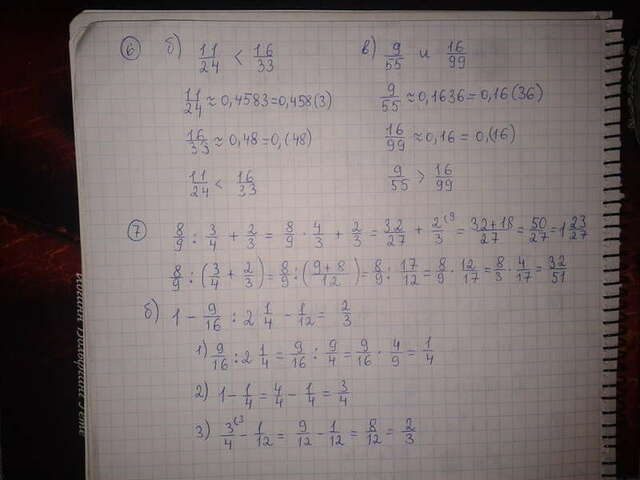 6 б) 11/24 < 16/33 в) 9/55 и 16/99
11/24 ≈ 0,4583 = 0,458(3) 9/55 ≈ 0,1636 = 0,16(36)
16/33 ≈ 0,48 = 0,(48) 16/99 ≈ 0,16 = 0,(16)
11/24 < 16/33 9/55 > 16/99
7 8/9 : 3/4 + 2/3 = 8/9 · 4/3 + 2/3 = 32/27 + 2/3 (9 = 32+18/27 = 50/27 = 1 23/27
8/9 : (3/4 + 2/3) = 8/9 : (9+8/12) = 8/9 : 17/12 = 8/9 · 12/17 = 8/3 · 4/17 = 32/51
б) 1 - 9/16 : 2 1/4 - 1/12 = 2/3
1) 9/16 : 2 1/4 = 9/16 : 9/4 = 9/16 · 4/9 = 1/4
2) 1 - 1/4 = 4/4 - 1/4 = 3/4
3) 3/4 (3 - 1/12 = 9/12 - 1/12 = 8/12 = 2/3